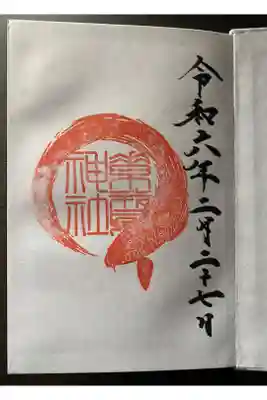 令和六年二月二十七日
神社